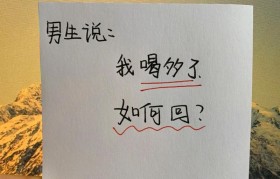 男生说：
我喝多了
如何回？